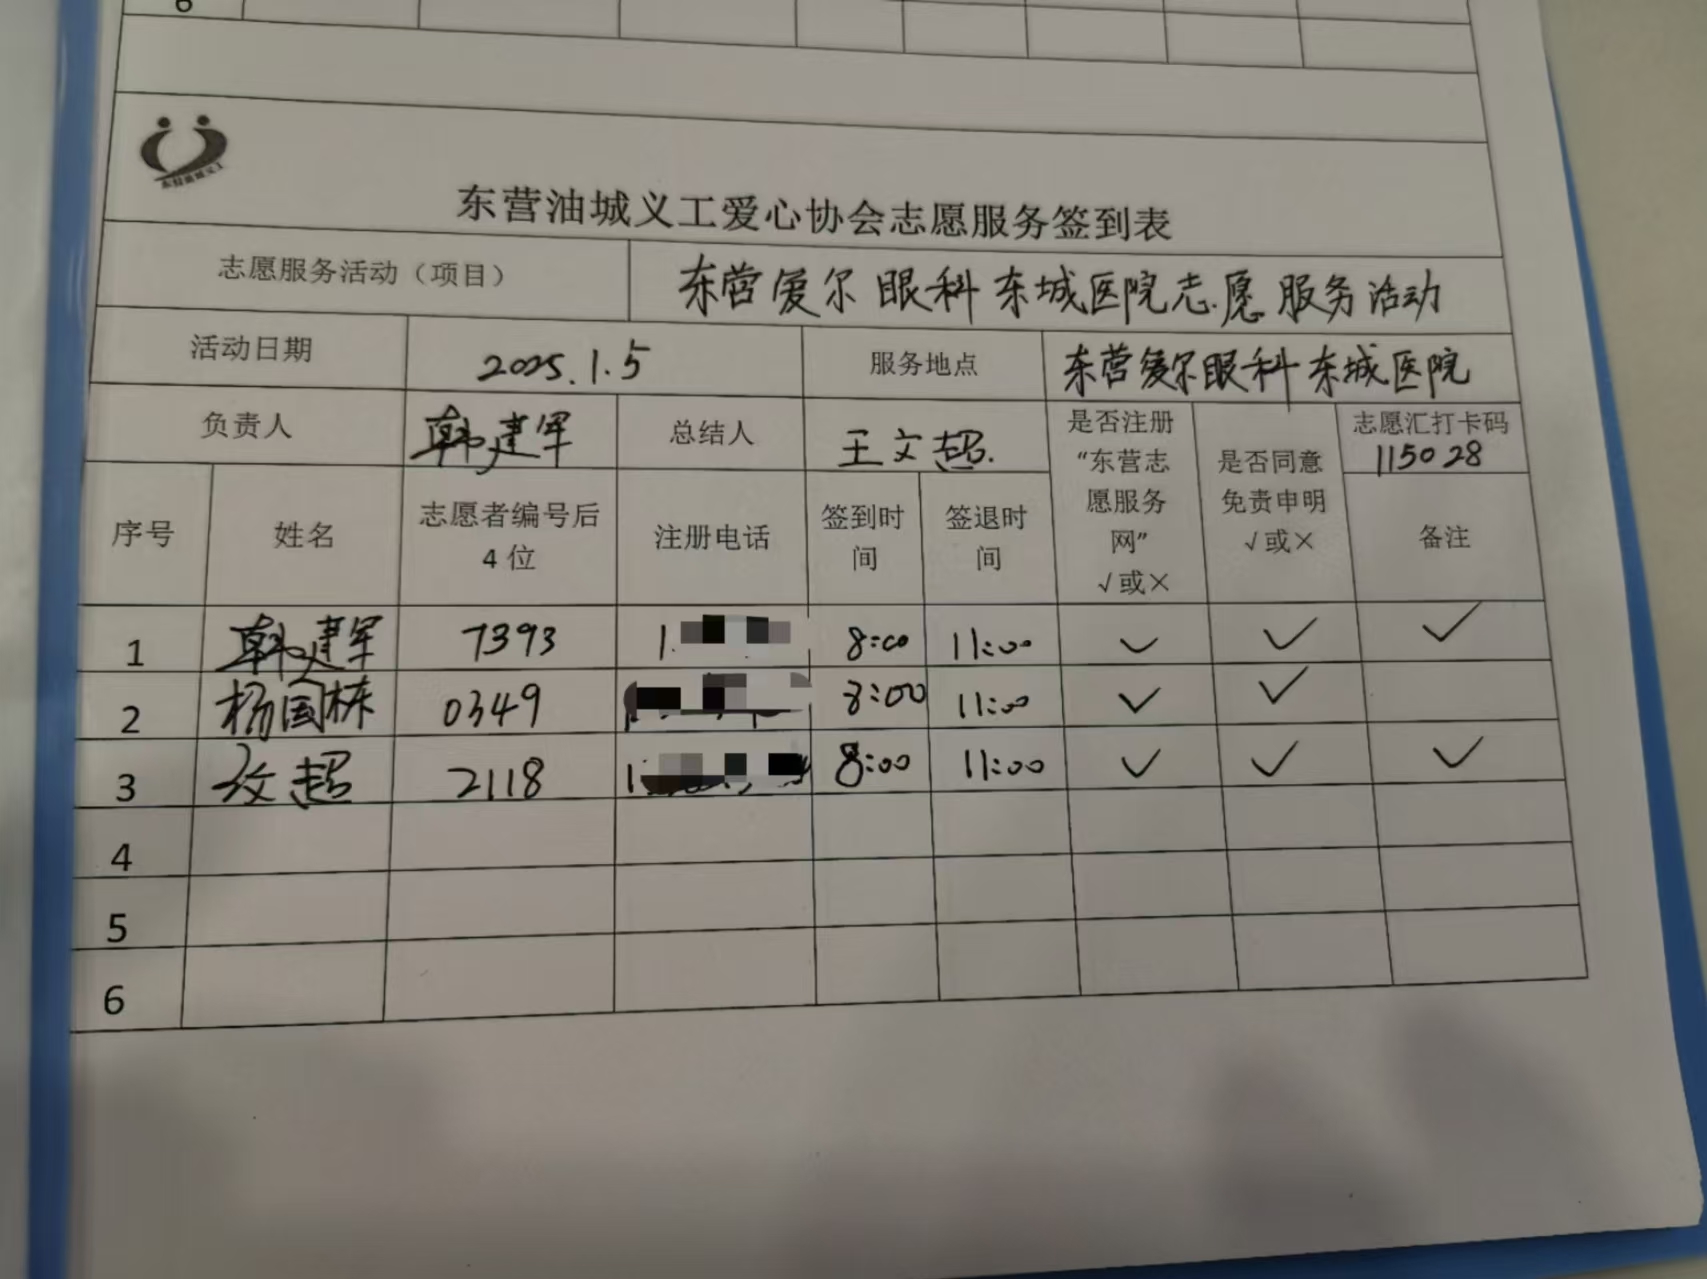 6
东营油城义工
东营油城义工爱心协会志愿服务签到表
志愿服务活动（项目） 东营爱尔眼科东城医院志愿服务活动
活动日期 2025.1.5 服务地点 东营爱尔眼科东城医院
负责人 韩建军 总结人 王文超. 是否注册“东营志愿服务网”√或× 是否同意免责申明√或× 志愿汇打卡码 115028
序号 姓名 志愿者编号后4位 注册电话 签到时间 签退时间 备注
1 韩建军 7393 1 8:00 11:00 ✓ ✓ ✓
2 杨国栋 0349 8:00 11:00 ✓ ✓
3 超 2118 1 8:00 11:00 ✓ ✓ ✓
4
5
6